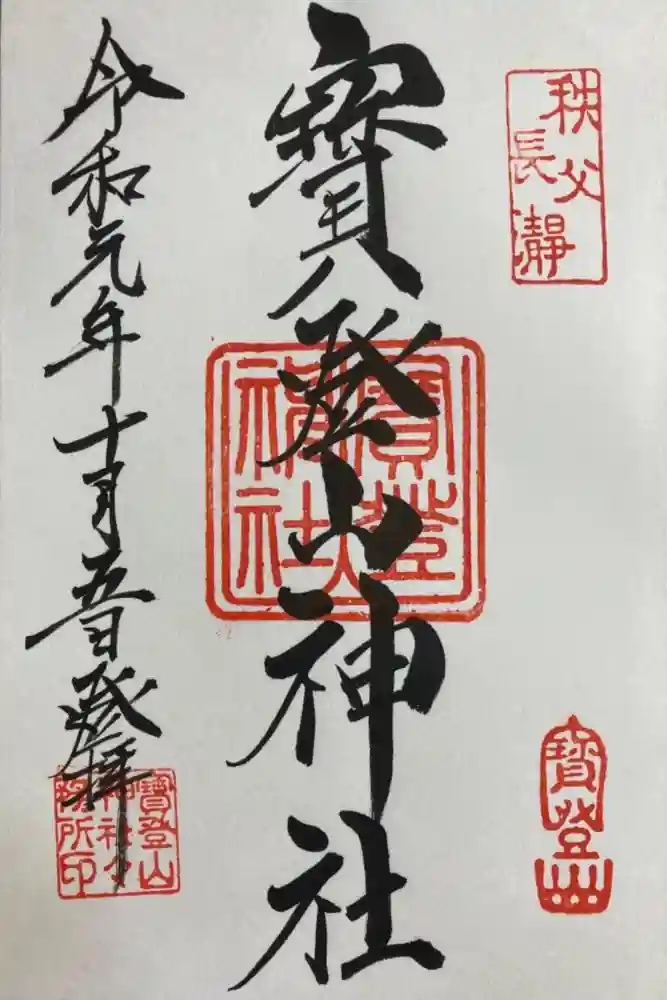 秩父
長瀞
寶登山
寶登山神社
寶登
神社
令和元年十月五日登拝
寶登山
神社々
務所印